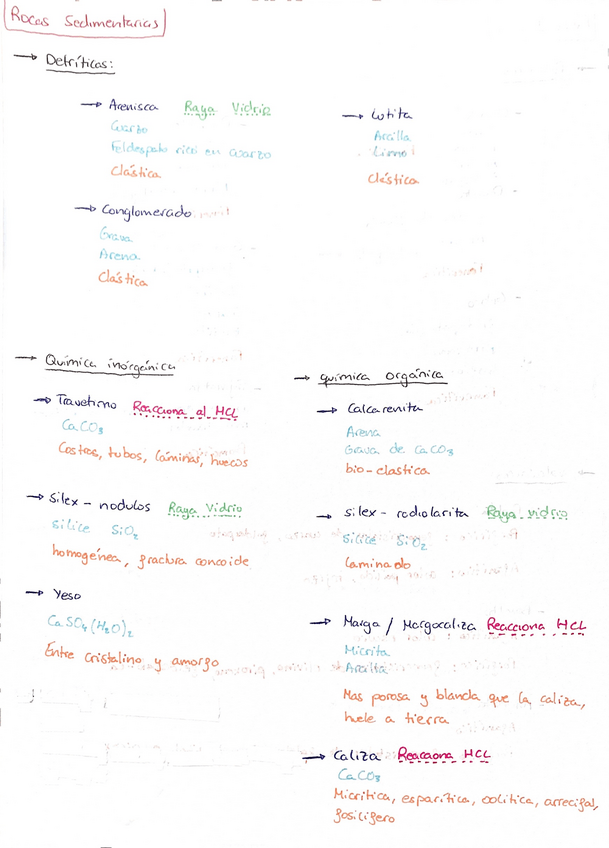 Rocas Sedimentarias
→ Detríticas:
→ Arenisca Raya Vidrio
Cuarzo
Feldespato rico en cuarzo
Clástica
→ Conglomerado
Grava
Arena
Clástica
→ Lutita
Arcilla
Limo
Clástica
→ Química inorgánica
→ Travertino Reacciona al HCL
CaCO3
Costras, tubos, láminas, huecos
→ Silex - nodulos Raya Vidrio
Silice SiO2
homogénea, fractura concoide
→ Yeso
CaSO4(H2O)2
Entre cristalino y amorfo
→ química orgánica
→ Calcarenita
Arena
Grava de CaCO3
bio-clastica
→ Silex - radiolarita Raya vidrio
Silice SiO2
Laminado
→ Marga / Margocaliza Reacciona HCL
Micrita
Arcilla
Mas porosa y blanda que la caliza,
huele a tierra
→ Caliza Reacciona HCL
CaCO3
Micritica, esparítica, oolitica, arrecifal,
fosilifero